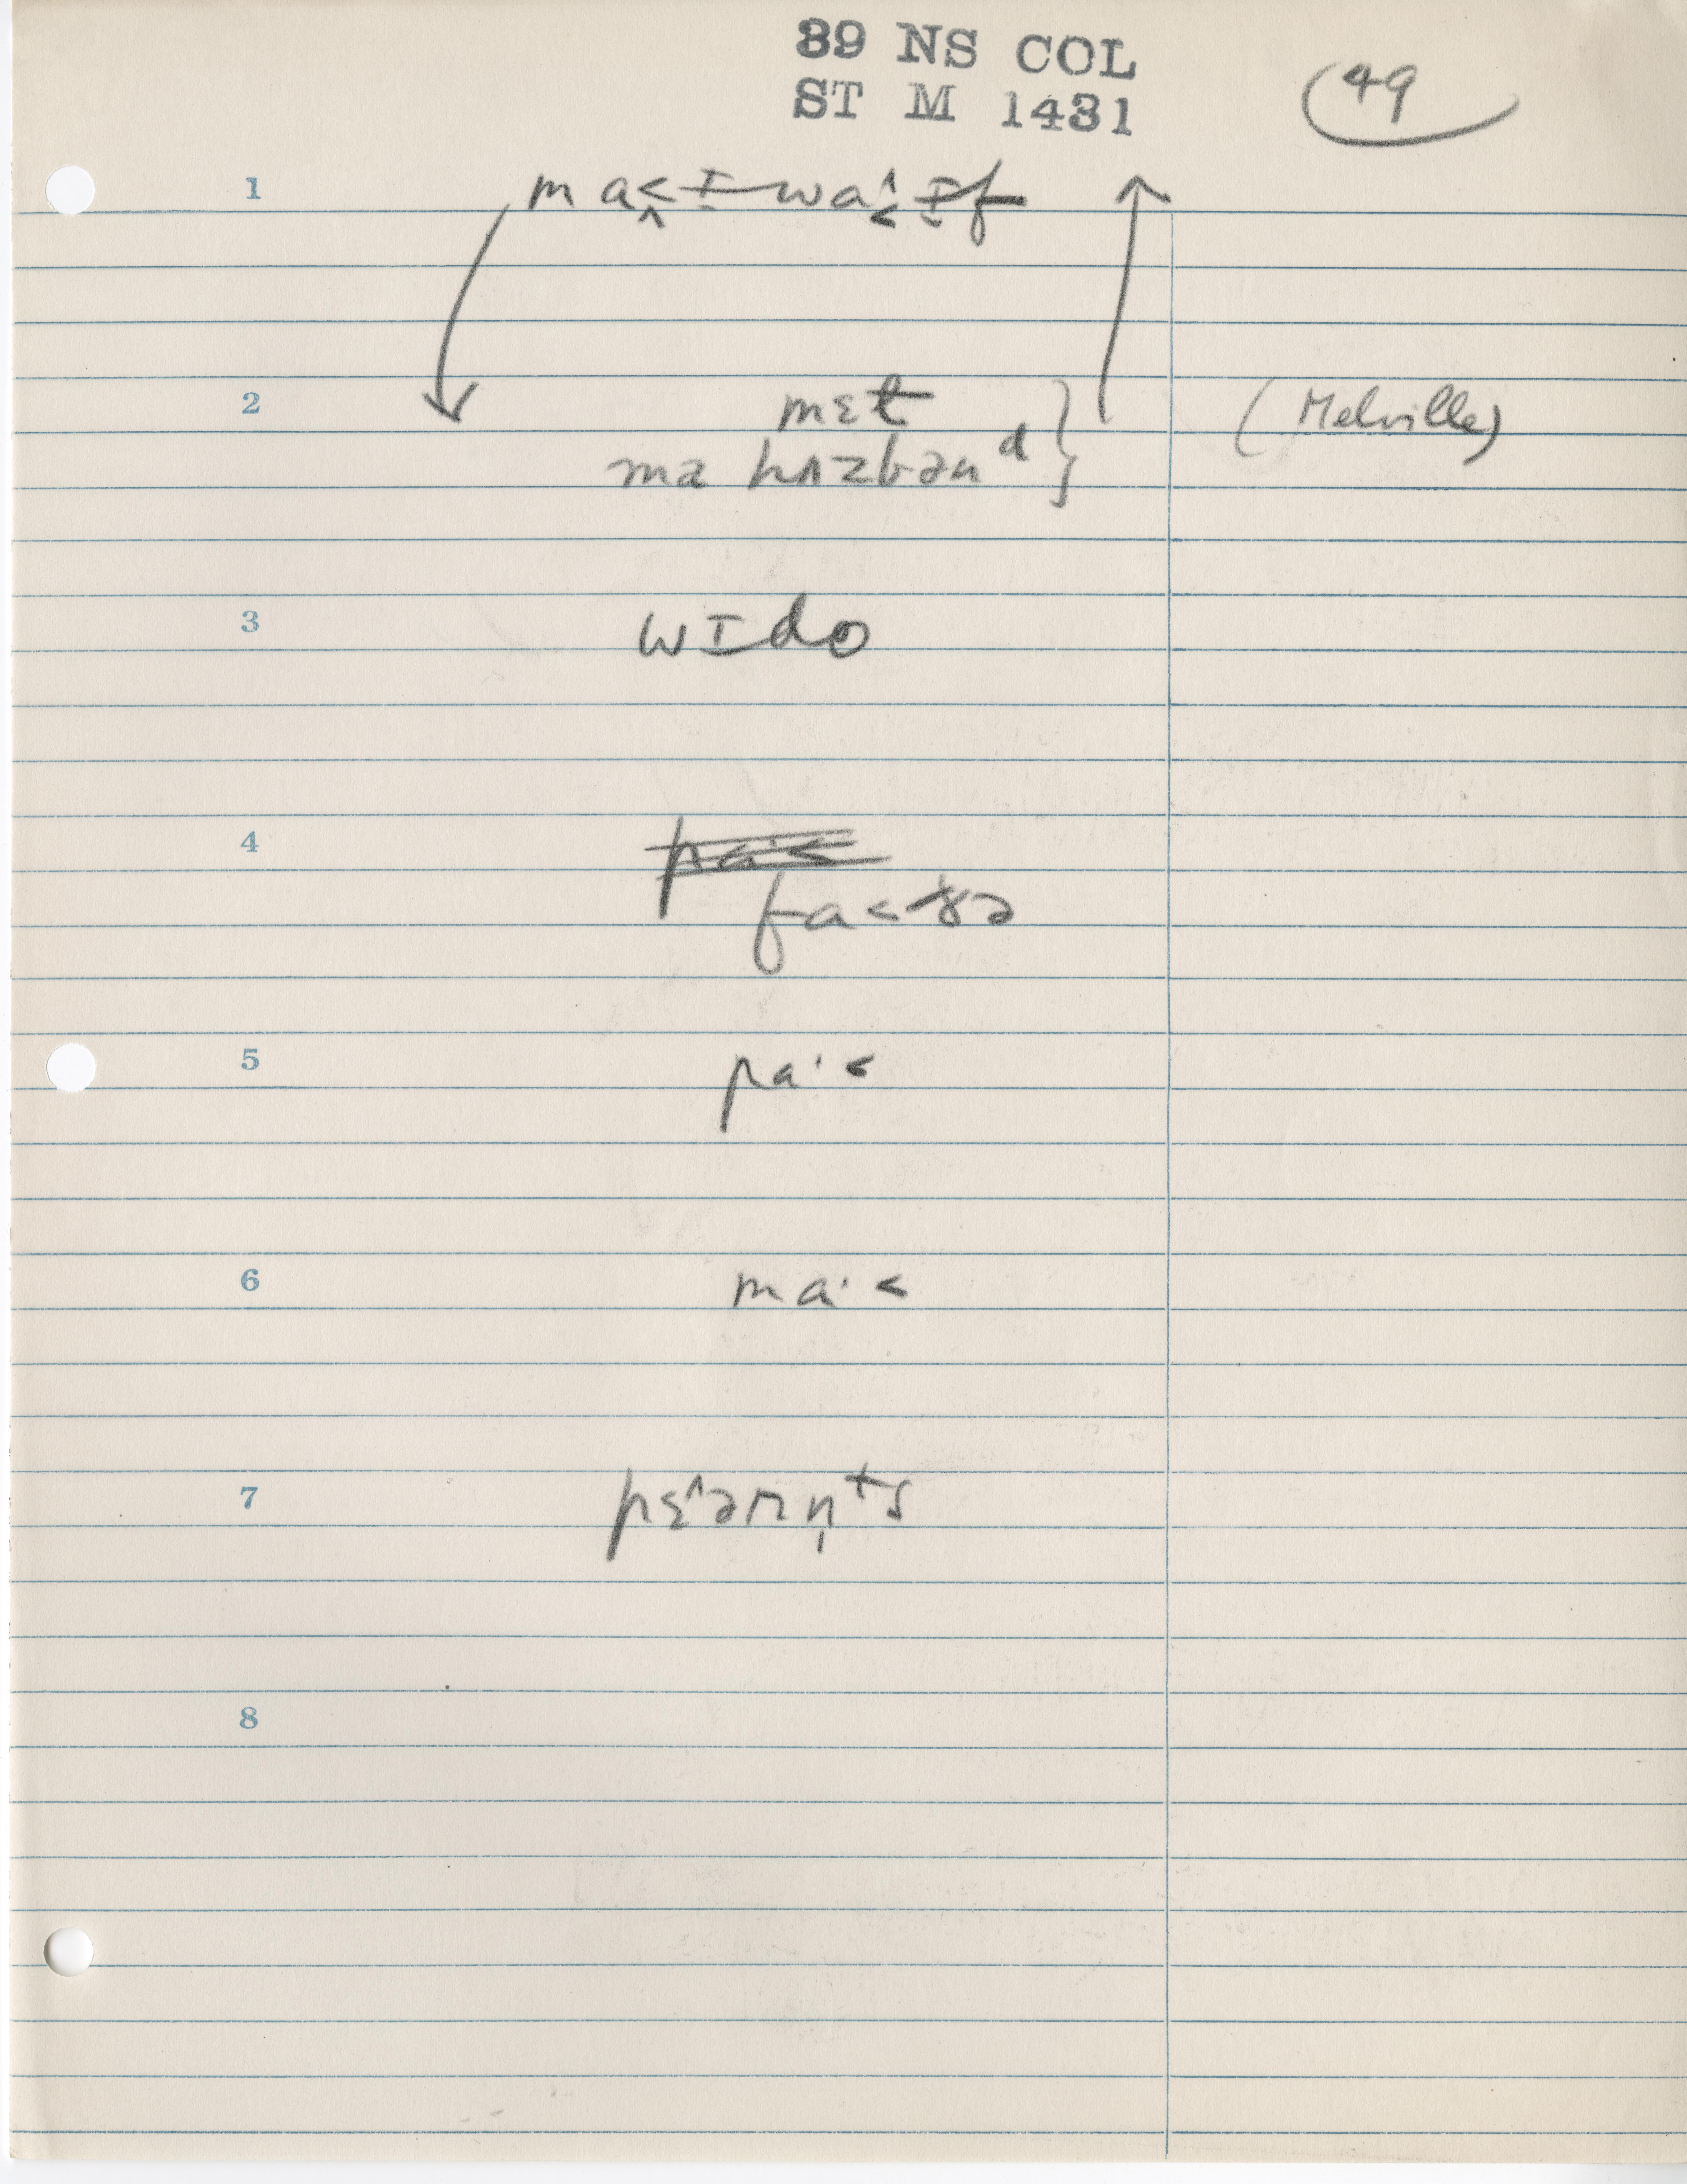 89 NS COL
ST M 1431
49
1 ma˂˄ɪ waˑ˄˂ɪf
2 mɛt
mə hʌzbənᵈ } (Melville)
3 wɪdo
4 paˑ˂
fa˂ðə
5 paˑ˂
6 maˑ˂
7 pɛ˄ərn̩ᵗs
8